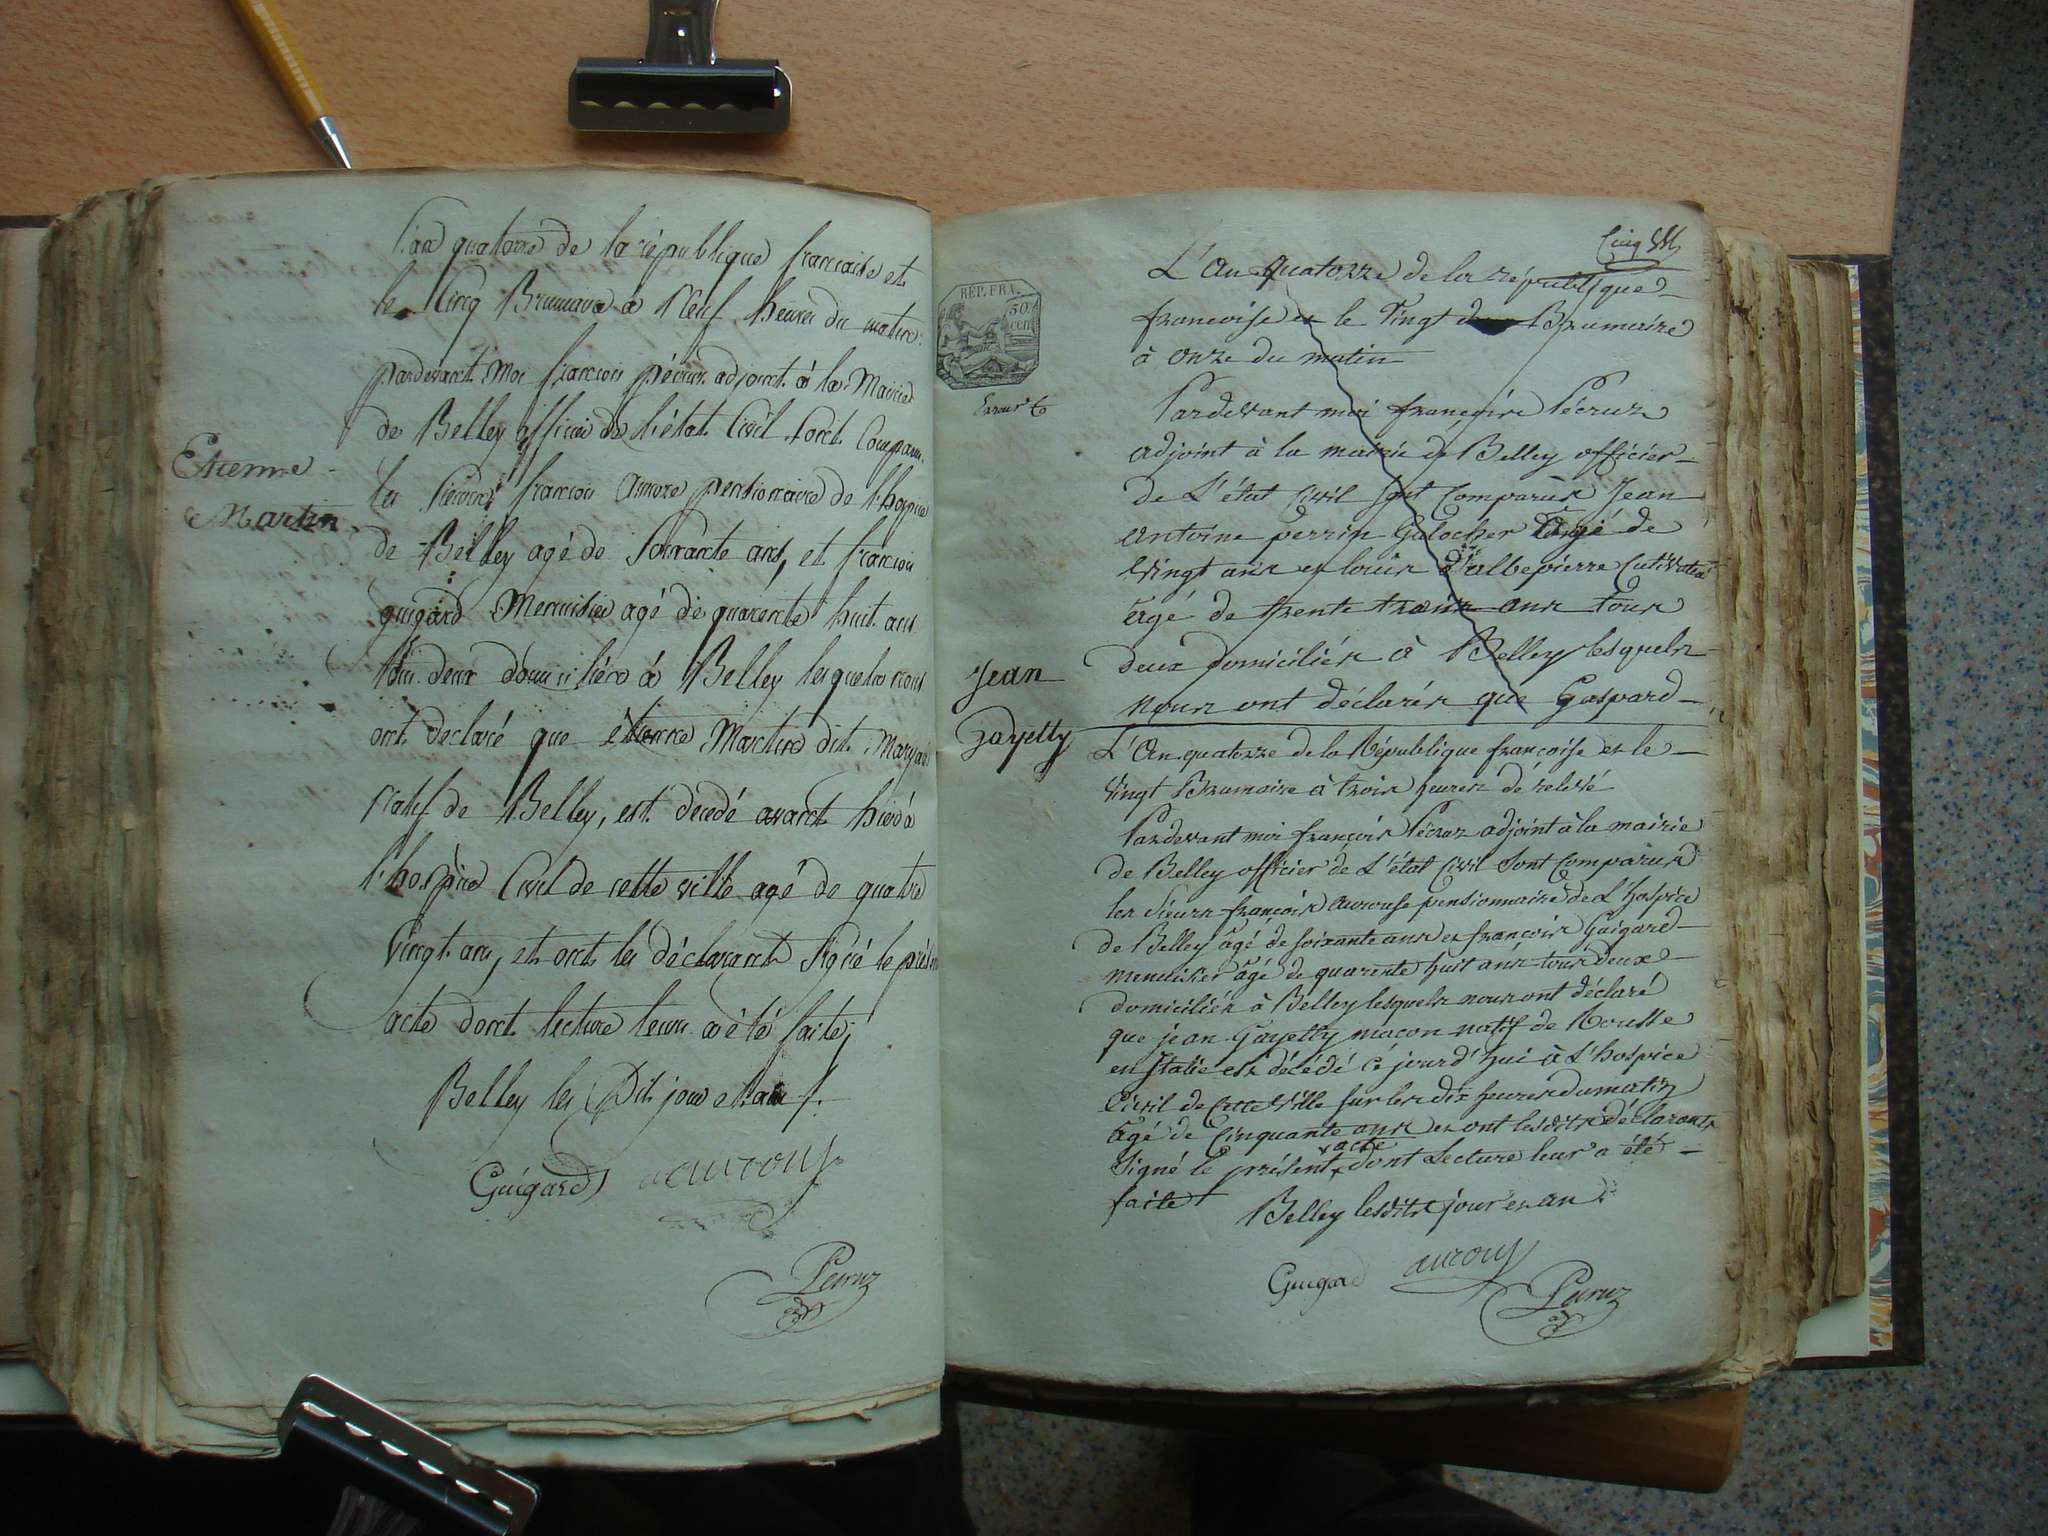 l'an quatorze de la république francaise et
le Cinq Brumaire à Neuf heures du matin
pardevant Moi francois pécruz adjoint à la Mairie
de Belley officier de l'état Civil sont Comparu
les Sieurs francois aurouse pensionnaire de l'hospice
de Belley agé de Soixante ans, et francois
guigard Menuisier agé de quarente huit ans
tous deux domiciliés à Belley lesquels nous
ont declaré que étienne Martin dit
Natif de Belley, est décédé avant hier à
l'hospice Civil de cette ville agé de quatre
vingt ans, et ont les déclarant Signé le présent
acte dont lecture leur a été faite,
Belley les Dit jour et an
Guigard aurouse
Pecruz
Etienne
Martin
Cinq
REP. FRA.
50
cen
L'an quatorze de la république
francoise et le Vingt Brumaire
à onze du matin
Pardevant moi françois Pécruz
adjoint à la mairie de Belley officier
de L'état Civil sont Comparus Jean
antoine perrin Galocher âgé de
Vingt ans et louis d'albepierre Cultivateur
âgé de trente trois ans tous
deux domiciliés à Belley lesquels
nous ont déclarés que Gaspard
Jean
Gayetty
L'an quatorze de la République françoise et le
Vingt Brumaire à trois heures de relevé
Pardevant moi françois Pécruz adjoint à la mairie
de Belley officier de L'état Civil sont Comparus
les Sieurs françois aurouse pensionnaire de L'hospice
de Belley âgé de soixante ans et françois Guigard
menuisier âgé de quarente huit ans tous deux
domiciliés à Belley lesquels nous ont déclaré
que jean Gayetty macon natif de
en Italie est décédé ce jourd'hui à L'hospice
Civil de Cette Ville sur les dix heures du matin
âgé de Cinquante ans et ont lesdits déclarants
acte
Signé le présent dont Lecture leur a été
faite
Belley lesdits jour et an
Guigard aurouse
Pecruz